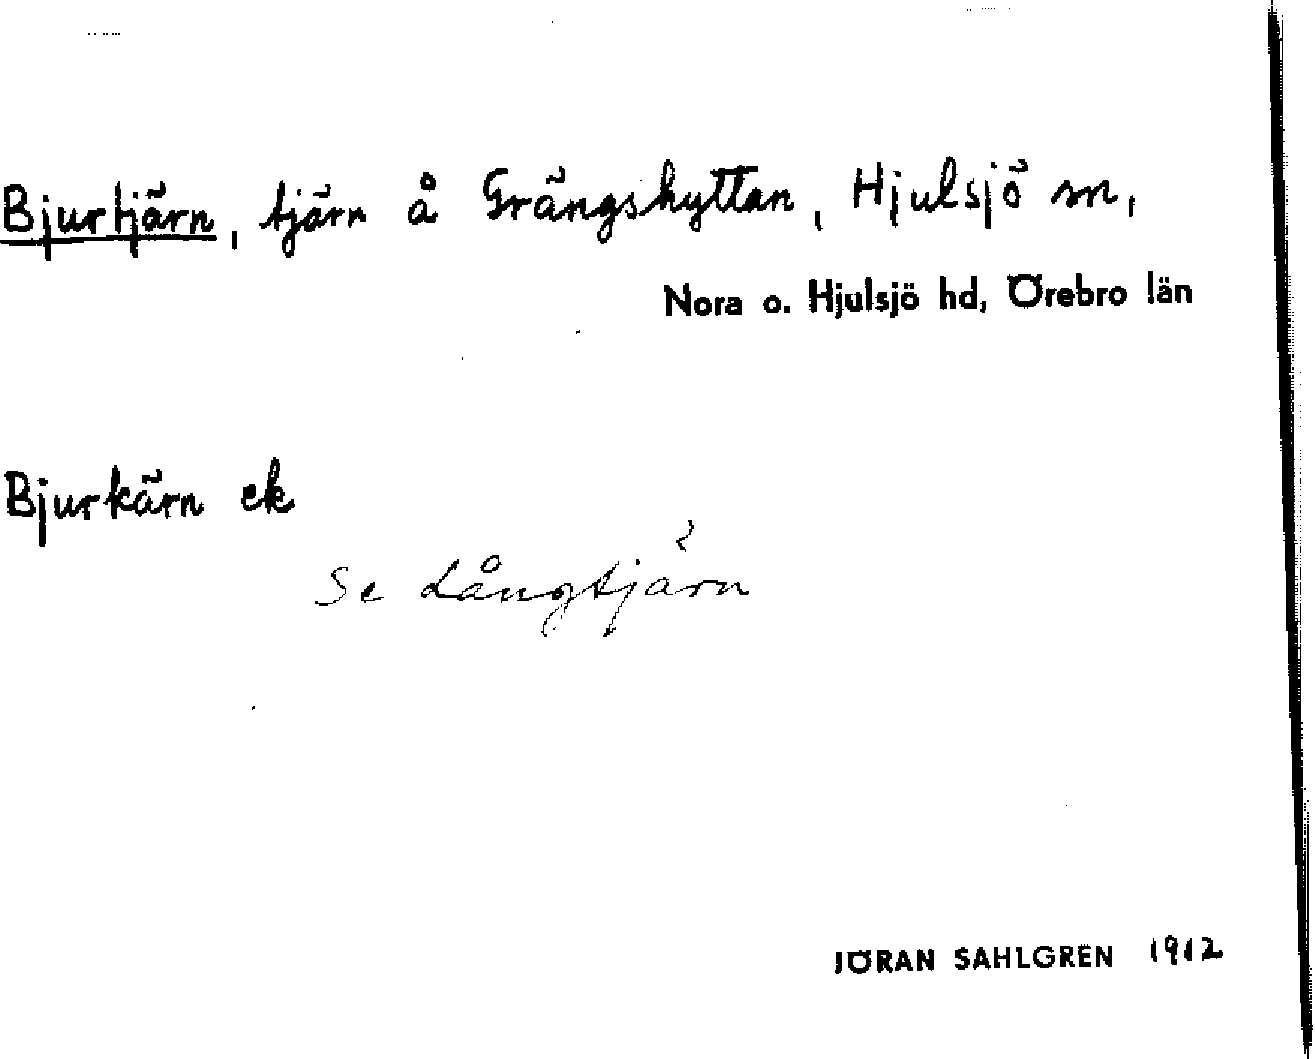 Bjurtjärn, tjärn å Grängshyttan, Hjulsjö sn,
Nora o. Hjulsjö hd, Örebro län
Bjurkärn ek
Se Långtjärn
JÖRAN SAHLGREN 1912